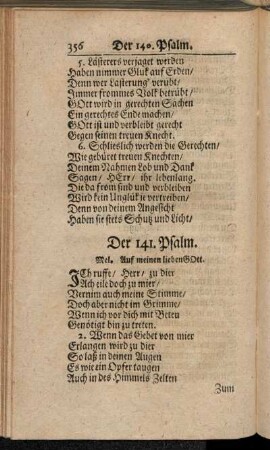 356 Der 140. Psalm.
5. Lästerers verjaget werden
Haben nimmer Gluk auf Erden/
Denn wer Lästerung verübt/
Jmmer frommes Volk betrübt/
GOtt wird in gerechten Sachen
Ein gerechtes Ende machen/
GOtt ist und verbleibt gerecht
Gegen seinen treuen Knecht.
6. Schlieslich werden die Gerechten/
Wie gebüret treuen Knechten/
Deinem Nahmen Lob und Dank
Sagen/ HErr/ ihr lebenlang.
Die da from sind und verbleiben
Wird kein Unglük ie vertreiben/
Denn von deinem Angesicht
Haben sie stets Schutz und Licht/
Der 141. Psalm.
Mel. Auf meinen lieben GOtt.
JCh ruffe/ Herr/ zu dier
Ach eile doch zu mier/
Vernim auch meine Stimme/
Doch aber nicht im Grimme/
Wenn ich vor dich mit Beten
Genötigt hin zu treten.
2. Wenn das Gebet von mier
Erlangen wird zu dier
So laß in deinen Augen
Es wie ein Opfer taugen
Auch in des Himmels Zelten
Zum